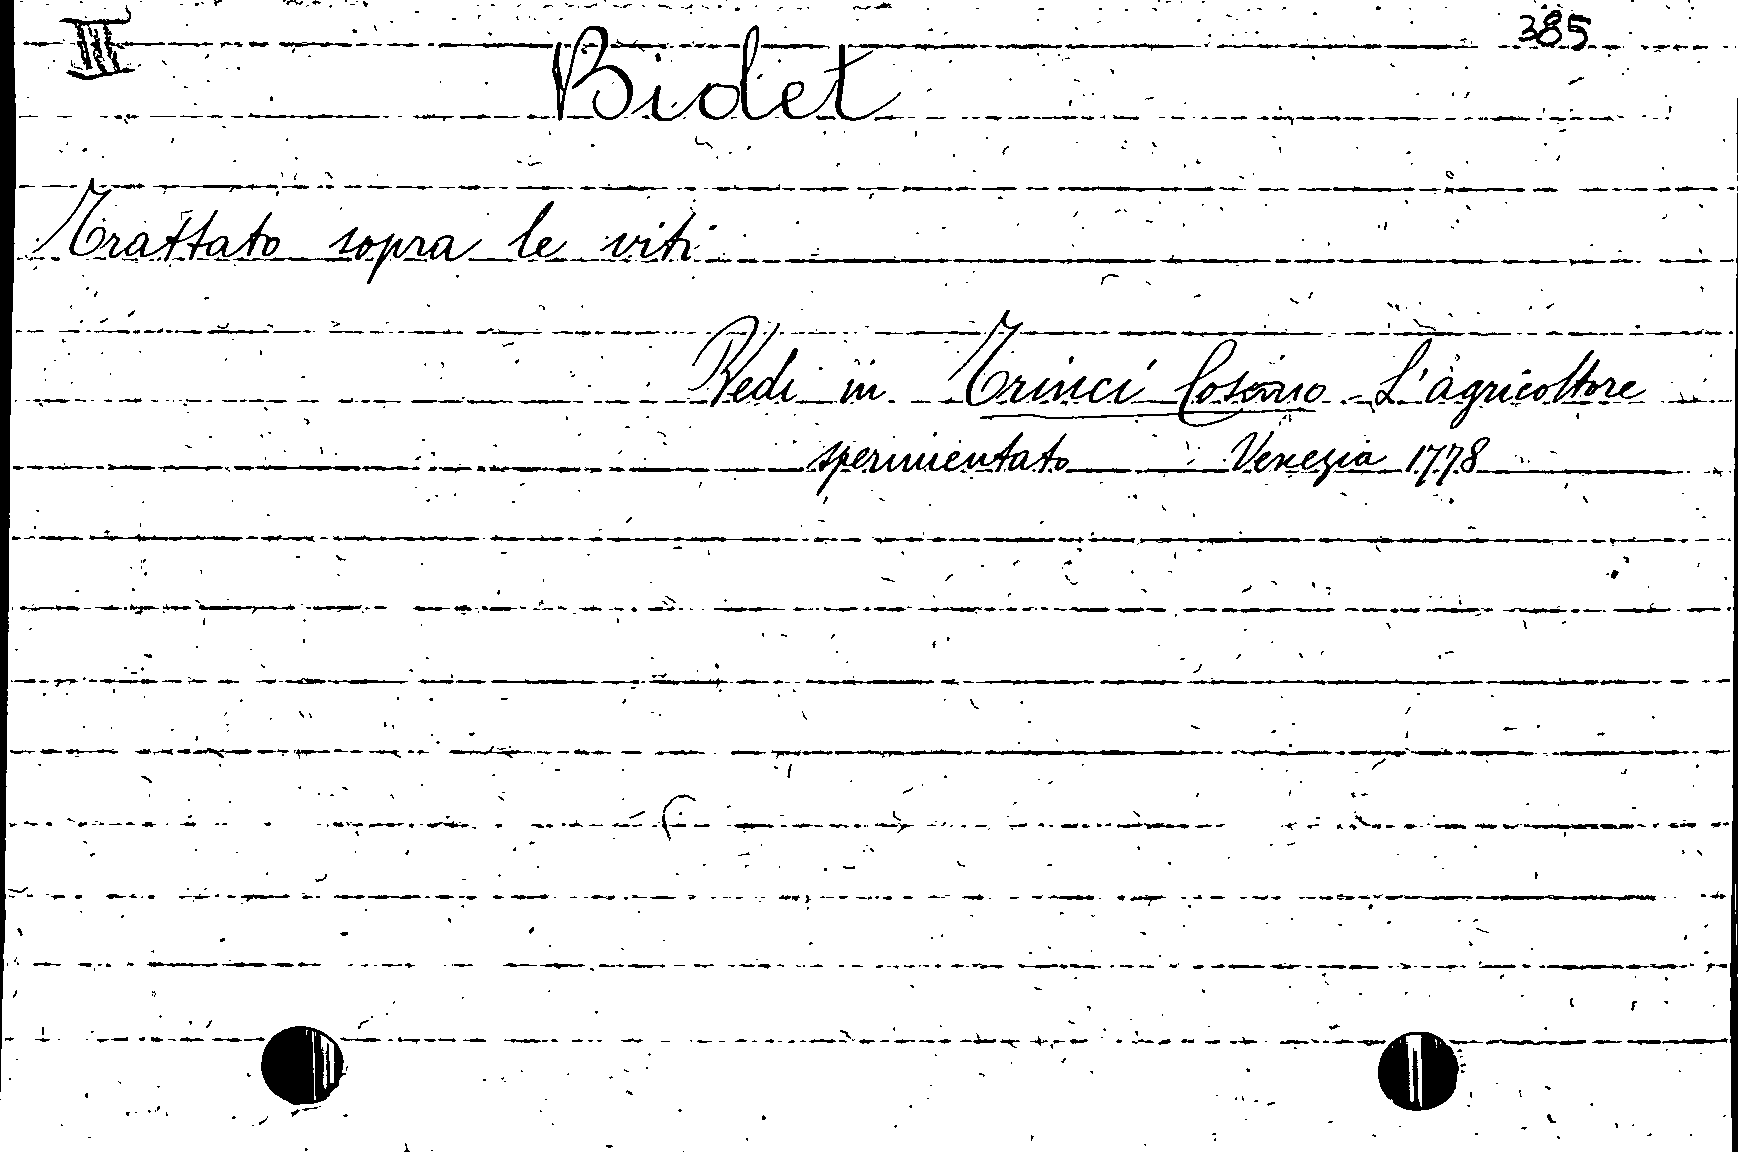 III
385
Bidet
Trattato sopra le viti
Vedi in Trinci Cosimo - L'agricoltore
sperimentato Venezia 1778